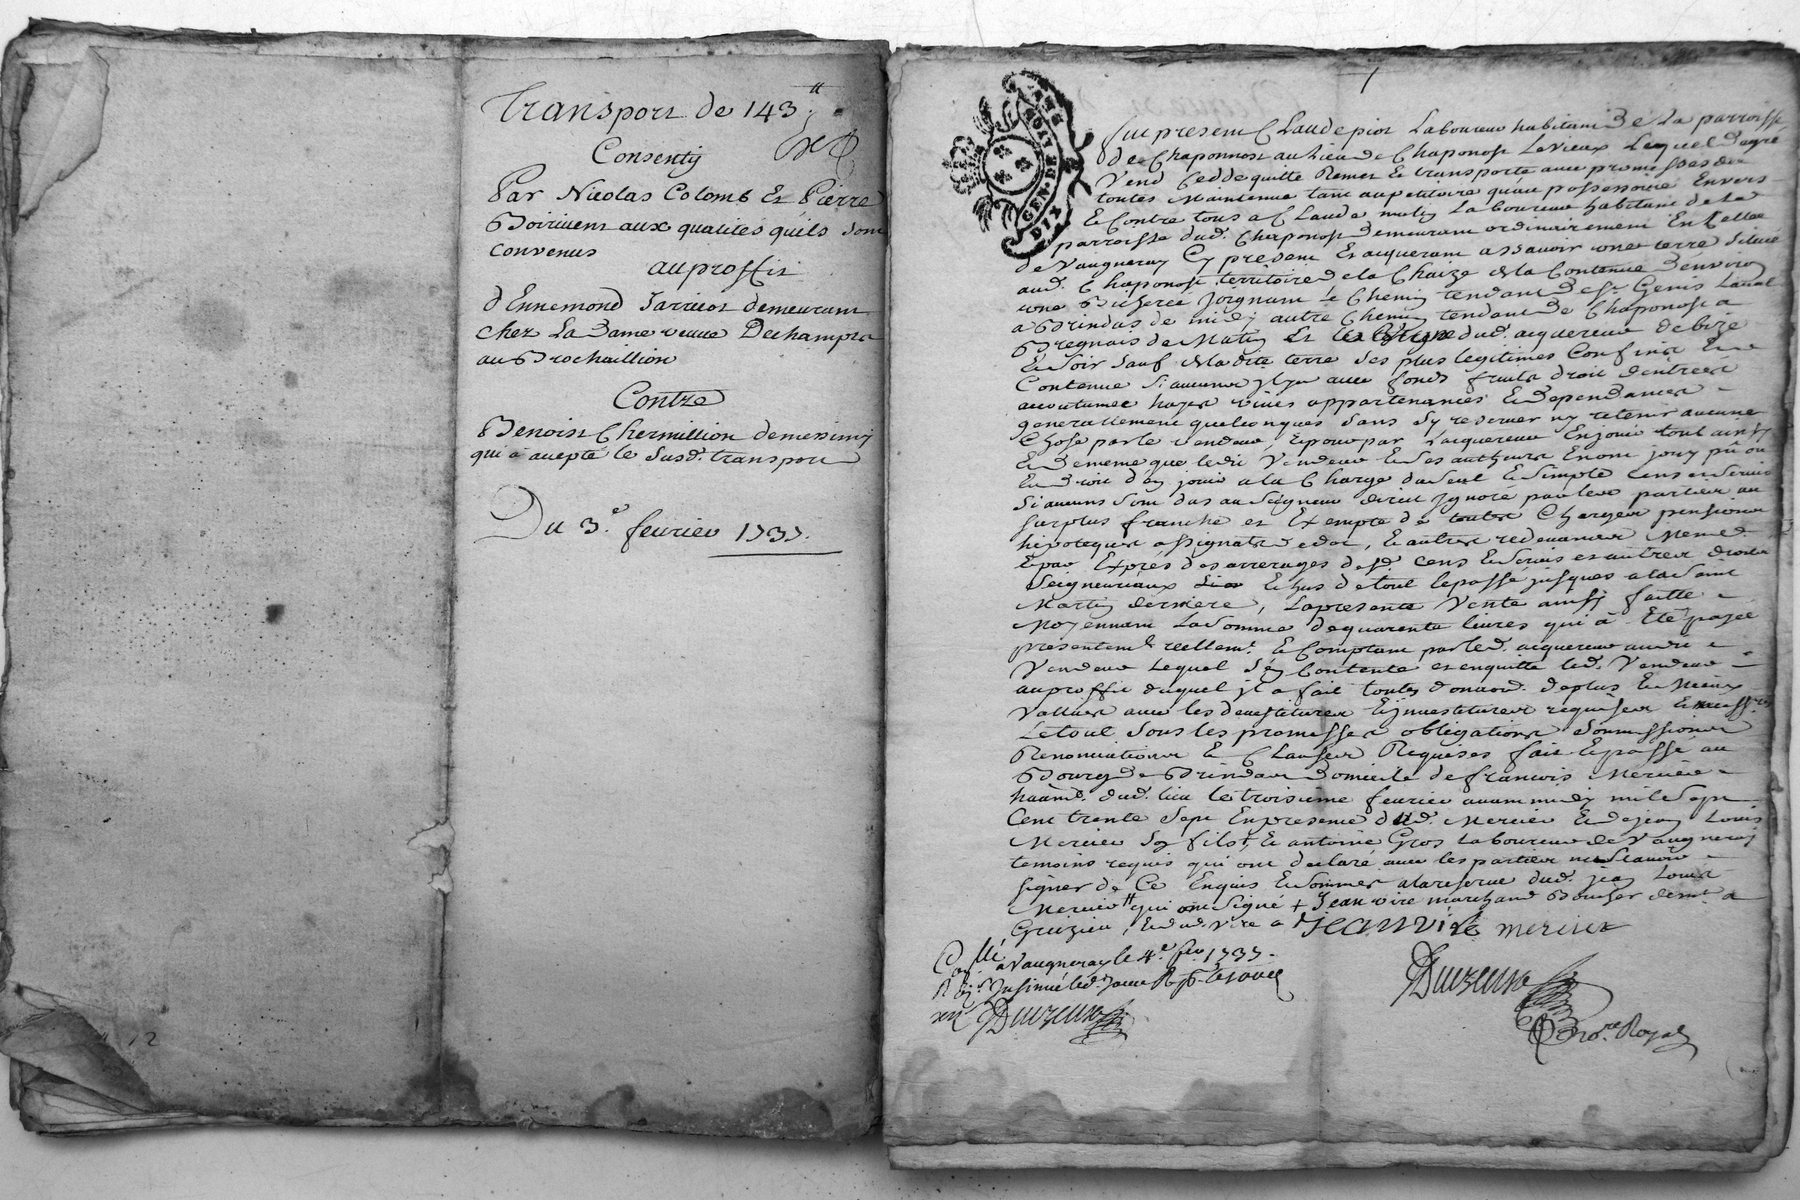 Transport de 143 ₶
Consenty
Par Nicolas Colomb Et Pierre
Boiriuent aux qualités quils sont
convenus
au proffit
d'Ennemond Jarricot demeurant
chez La Dame veuue Dechamps
au Brochaillion
Contre
Benoist Chermillion demesimy
qui a acepté le susd. transport
Du 3.e feurier 1737.
12
1
GEN. DE LYON
DIX
Fut present Claude piot Laboureur habitant de La parroisse
de Chaponnost au lieu de Chaponost Le vieux Lequel de gré
Vend Cedde quitte Remet et transporte auec promesses de
toutes Maintenue tant au petitoire qu'au possessoire Envers
Et Contre tous a Claude Laboureur habitant de La
parroisse dud. Chaponost demeurant ordinairement En Celle
de Vaugneray Cy present Et acquerant assauoir une terre située
aud. Chaponost territoire de la Chaize de la Contenue d'environ
une Bicherée Joignant le Chemin tendant de St. Genis Laual
a Brindas de midy autre Chemin tendant de Chaponost a
de Matin Et dud. acquereur de bize
Et soir sauf de la dite terre ses plus legitimes Confins Et
Contenue si aucune jl y a auec fonds fruits droit d'entrées
accoutumée hayes viues appartenances Et Dependances
generallement quelconques sans s'y reserver ny retenir aucune
Chose par le vendeur, Et pour par L'acquereur En jouir tout ainsy
Et de meme que ledit Vendeur Et ses autheurs En ont jouy pû ou
Et dut d'en jouir a la Charge du seul Et simple Cens et Seruis
si aucuns sont dus au seigneur direct Ignoré par les parties au
surplus franche et Exempte de toutes Charges pensions
hipoteques assignats de dot, Et autres redevances Meme
Et par Exprés des arrerages desd. Cens Et Seruis et autres droits
Seigneuriaux Et hus de tout le passé jusques a la Saint
Martin derniere, La presente Vente ainsy faitte
Moyennant La somme de quarente liures qui a Eté payée
presentemt. reellemt. Et Comptant par led. acquereur audit
Vendeur Lequel s'en Contente et en quitte led. Vendeur
au proffit duquel jl a fait toutes donnaon. de plus Et Mieux
Values auec les deuestitures Et jnuestitures requises Et
Le tout sous les promesses obligations Soumissions
Renonciations Et Clauses Requises fait Et passé au
Bourg de Brindas domicile de francois Mercier
dud. lieu le troisieme feurier auant midy mil Sept
Cent trente Sept En presence dud. Mercier Et de jean Louis
Mercier son fils, Et antoine Gros Laboureur de Vaugneray
temoins requis qui ont declaré auec les parties ne sçauoir
signer de Ce Enquis Et sommés a la reserue dud. jean Louis
Mercier qui ont signé + Jean vire marchand Boucher demt. a
Grezieu, Et dud. Vire
Jean Viré mercier
Collé. a Vaugneray le 4.e feur. 1737.
Duvzeux
Duvzeux
No.re Royal